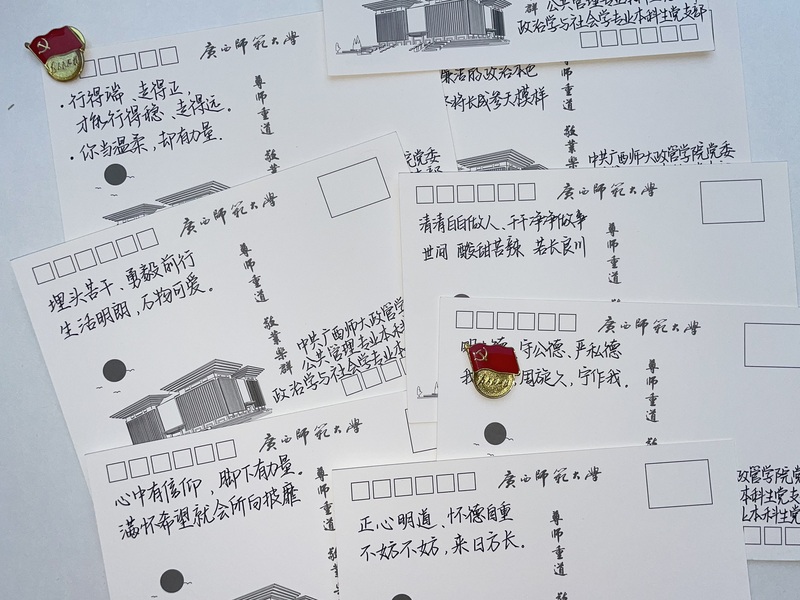 广西师范大学
·行得端、走得正,
才能行得稳、走得远。
·你当温柔,却有力量.
尊师重道 敬業樂
群
政治学与社会学专业本科生党支部
廉洁的政治本色
将长成参天模样
重道 敬業
中共广西师大政管学院党委
党委
广西师范大学
埋头苦干、勇毅前行
生活明朗,万物可爱。
尊师重道 敬業樂群
中共广西师大政管学院
公共管理专业本科
政治学与社会学专业本
广西师范大学
清清白白做人、干干净净做事
世间 酸甜苦辣 若长良川
尊师重道
广西师范大学
守公德、严私德
我 周旋久,宁作我.
尊师重道
政管学院党
本科生党支
本科生党
广西师范大学
心中有信仰,脚下有力量。
满怀希望就会所向披靡
尊师重道 敬業
广西师范大学
正心明道、怀德自重
不妨不妨,来日方长.
尊师重道